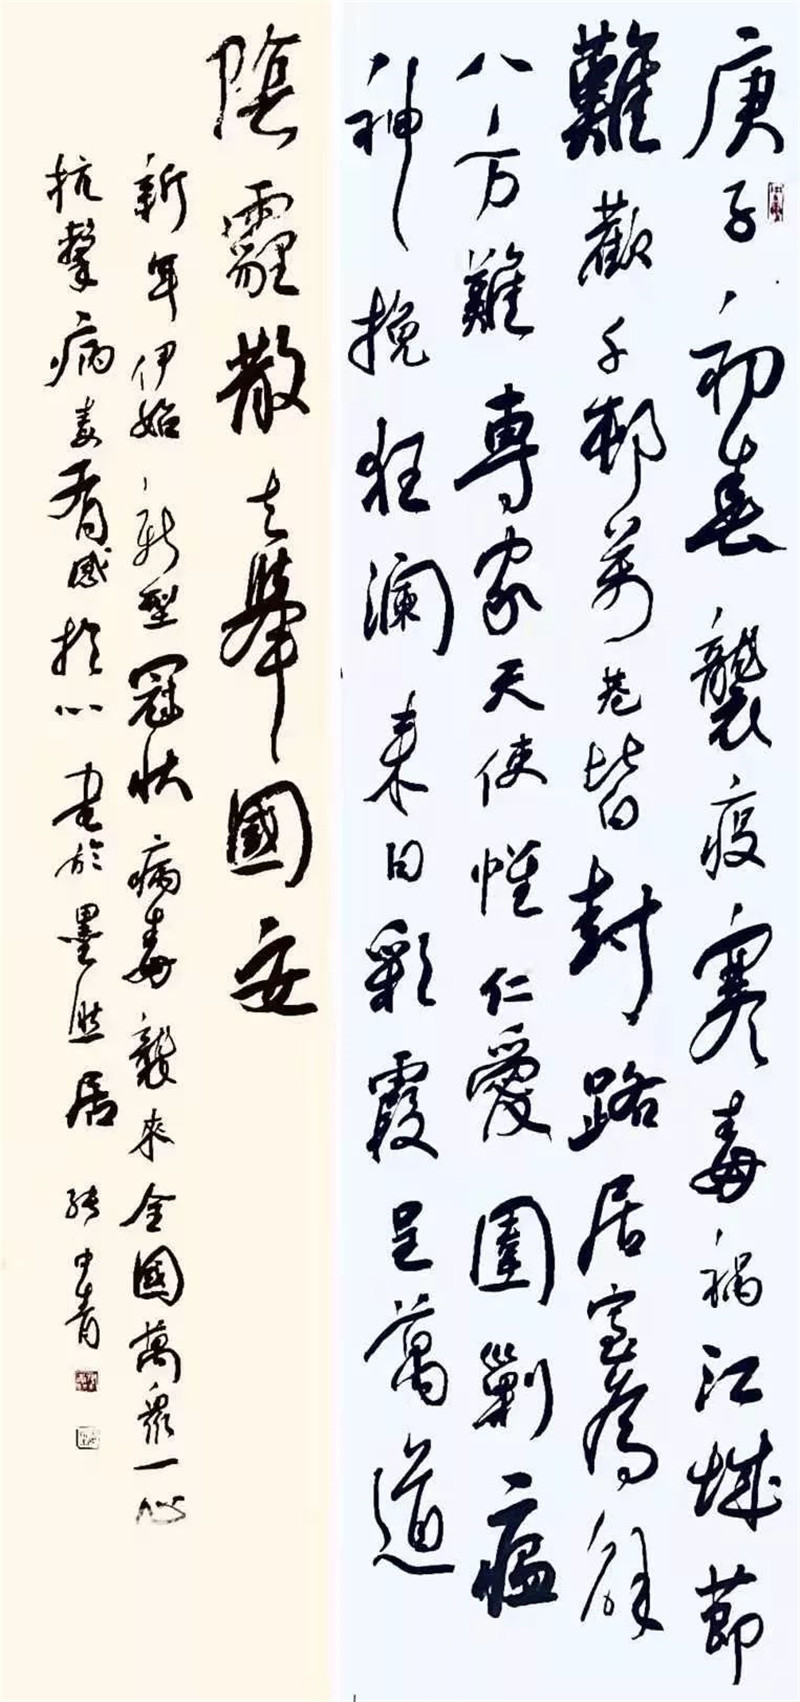 庚子初春襲疫寒毒禍江城節
難觀千邨萬巷皆封路居室為解
八方難專家天使惟仁愛圍剿瘟
神挽狂澜来日彩霞呈萬道
陰霾散去舉國安
新年伊始新型冠状病毒襲來全國萬衆一心
抗擊病毒有感於心書於墨居張中青